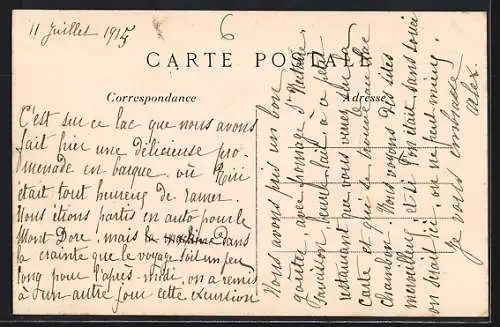 11 Juillet 1915
6
CARTE POSTALE
Correspondance
Adresse
C'est sur ce lac que nous avons
fait hier une délicieuse pro-
menade en barque, où Riri
était tout heureux de ramer.
Nous étions partis en auto pour le
Mont Dore, mais dans
la crainte que le voyage soit un peu
long pour l'après-midi, on a remis
à un autre jour cette excursion
Nous avons pris un bon
goûter, avec fromage St Nectaire
beurre, lait, à ce petit
restaurant que vous verrez sur la
carte et qui se trouve au lac
chambon. Nous voyons des sites
merveilleux et si l'on était sans souci
on serait ici, on ne peut mieux.
Je vous embrasse
Alex.